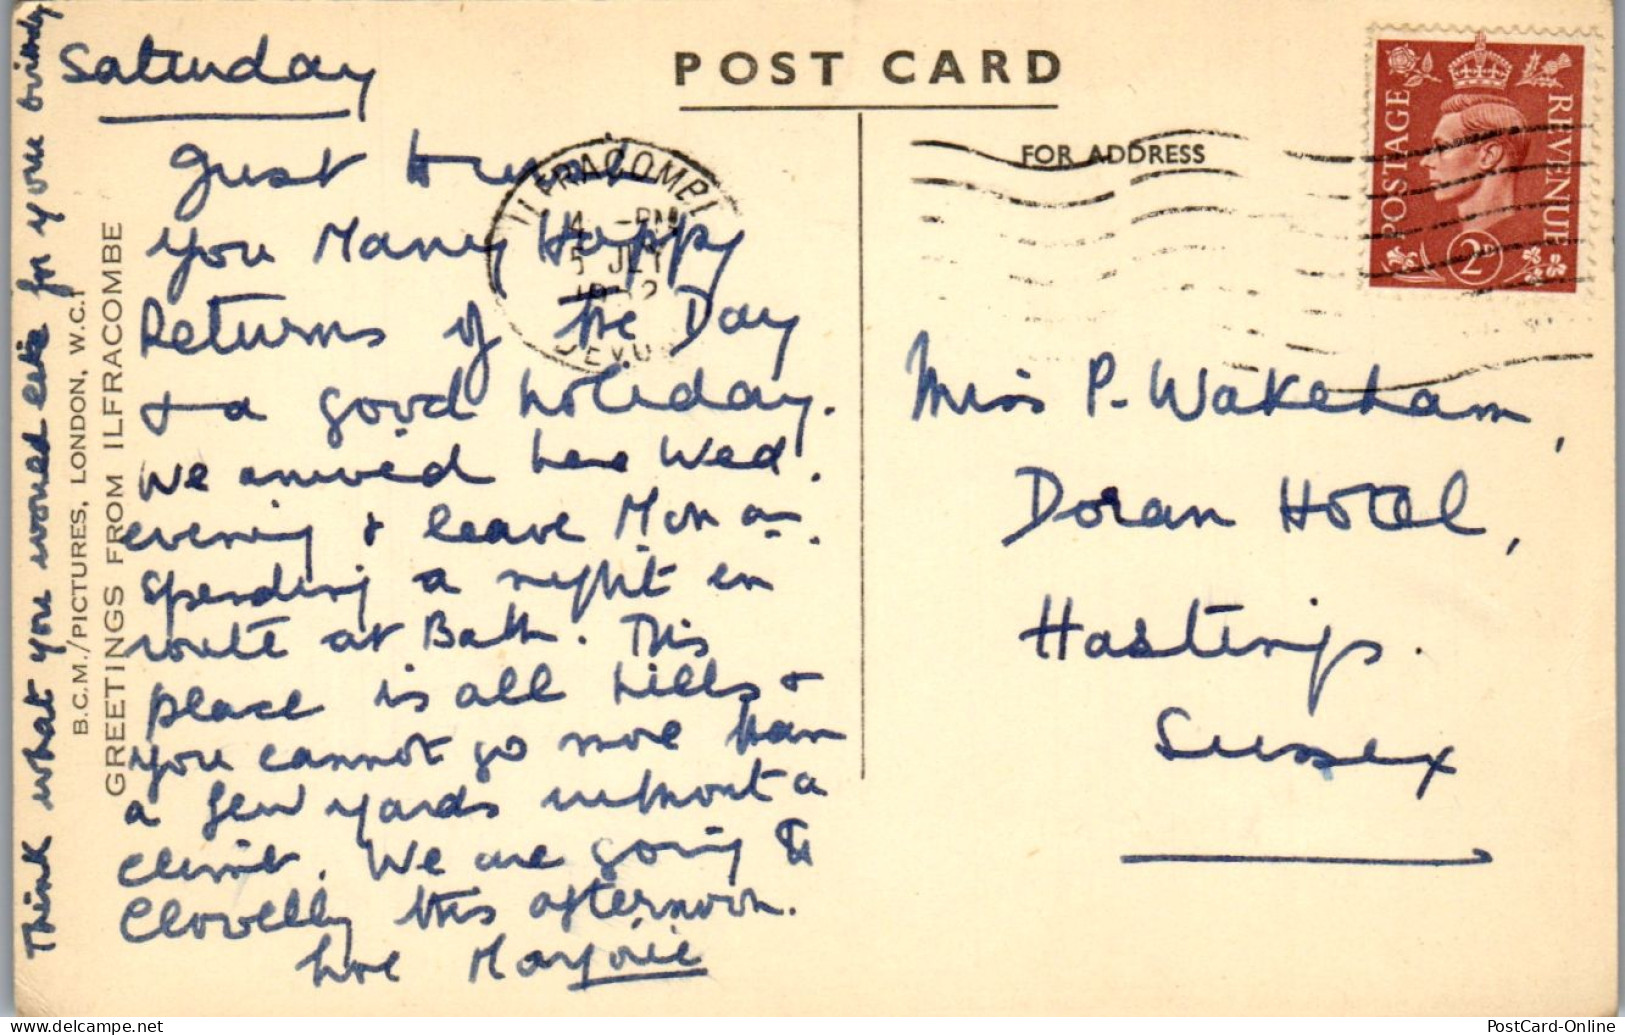 POST CARD
FOR ADDRESS
POSTAGE
REVENUE
2D
ILFRACOMBE
4 - PM
5 JLY
DEVON
Saturday
Just
you Many Happy
Returns of the Day
+ a good holiday.
We arrived here Wed.
evening + leave Mon a
spending a night en
route at Bath. This
place is all hills +
you cannot go more than
a few yards without a
climb. We are going to
Clovelly this afternoon.
Love Marjorie
Think what you would like for your birthday
B.C.M./PICTURES, LONDON, W.C.1
GREETINGS FROM ILFRACOMBE
Miss P. Wakeham,
Doran Hotel,
Hastings.
Sussex
delcampe.net
PostCard-Online